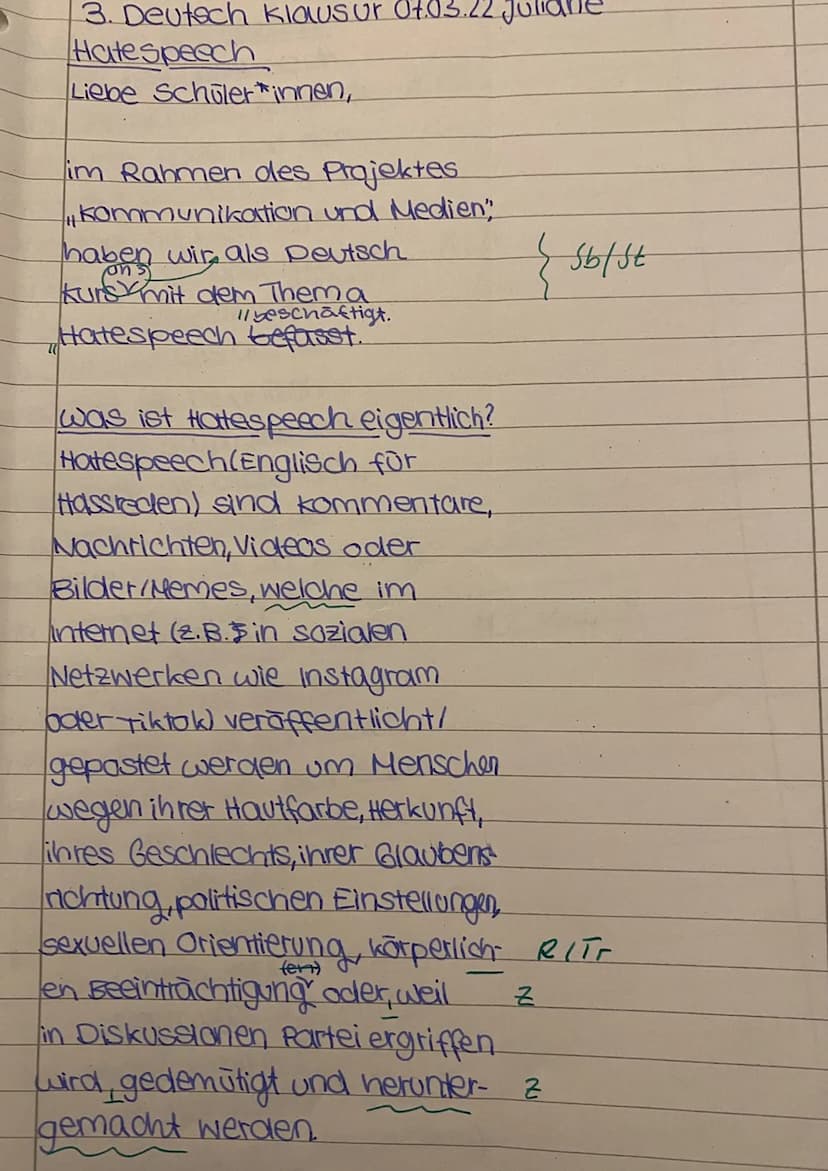 3. Deutsch Klausur 07.03.22 Juliane
Hatespeech
Liebe Schüler*innen,
im Rahmen des Projektes
„Kommunikation und Medien",
haben wir als Deutsch
uns
kurs mit dem Thema
Sb/St
"beschäftigt.
„Hatespeech befasst.
Was ist Hatespeech eigentlich?
Hatespeech (Englisch für
Hassreden) sind Kommentare,
Nachrichten, Videos oder
Bilder/Memes, welche im
Internet (z.B. in sozialen
Netzwerken wie Instagram
oder Tiktok) veröffentlicht/
gepostet werden um Menschen
wegen ihrer Hautfarbe, Herkunft,
ihres Geschlechts, ihrer Glaubens-
richtung, politischen Einstellungen,
sexuellen Orientierung, körperlich- R/Tr
(en)
en Beeinträchtigung oder, weil Z
in Diskussionen Partei ergriffen
wird, gedemütigt und herunter- Z
gemacht werden.